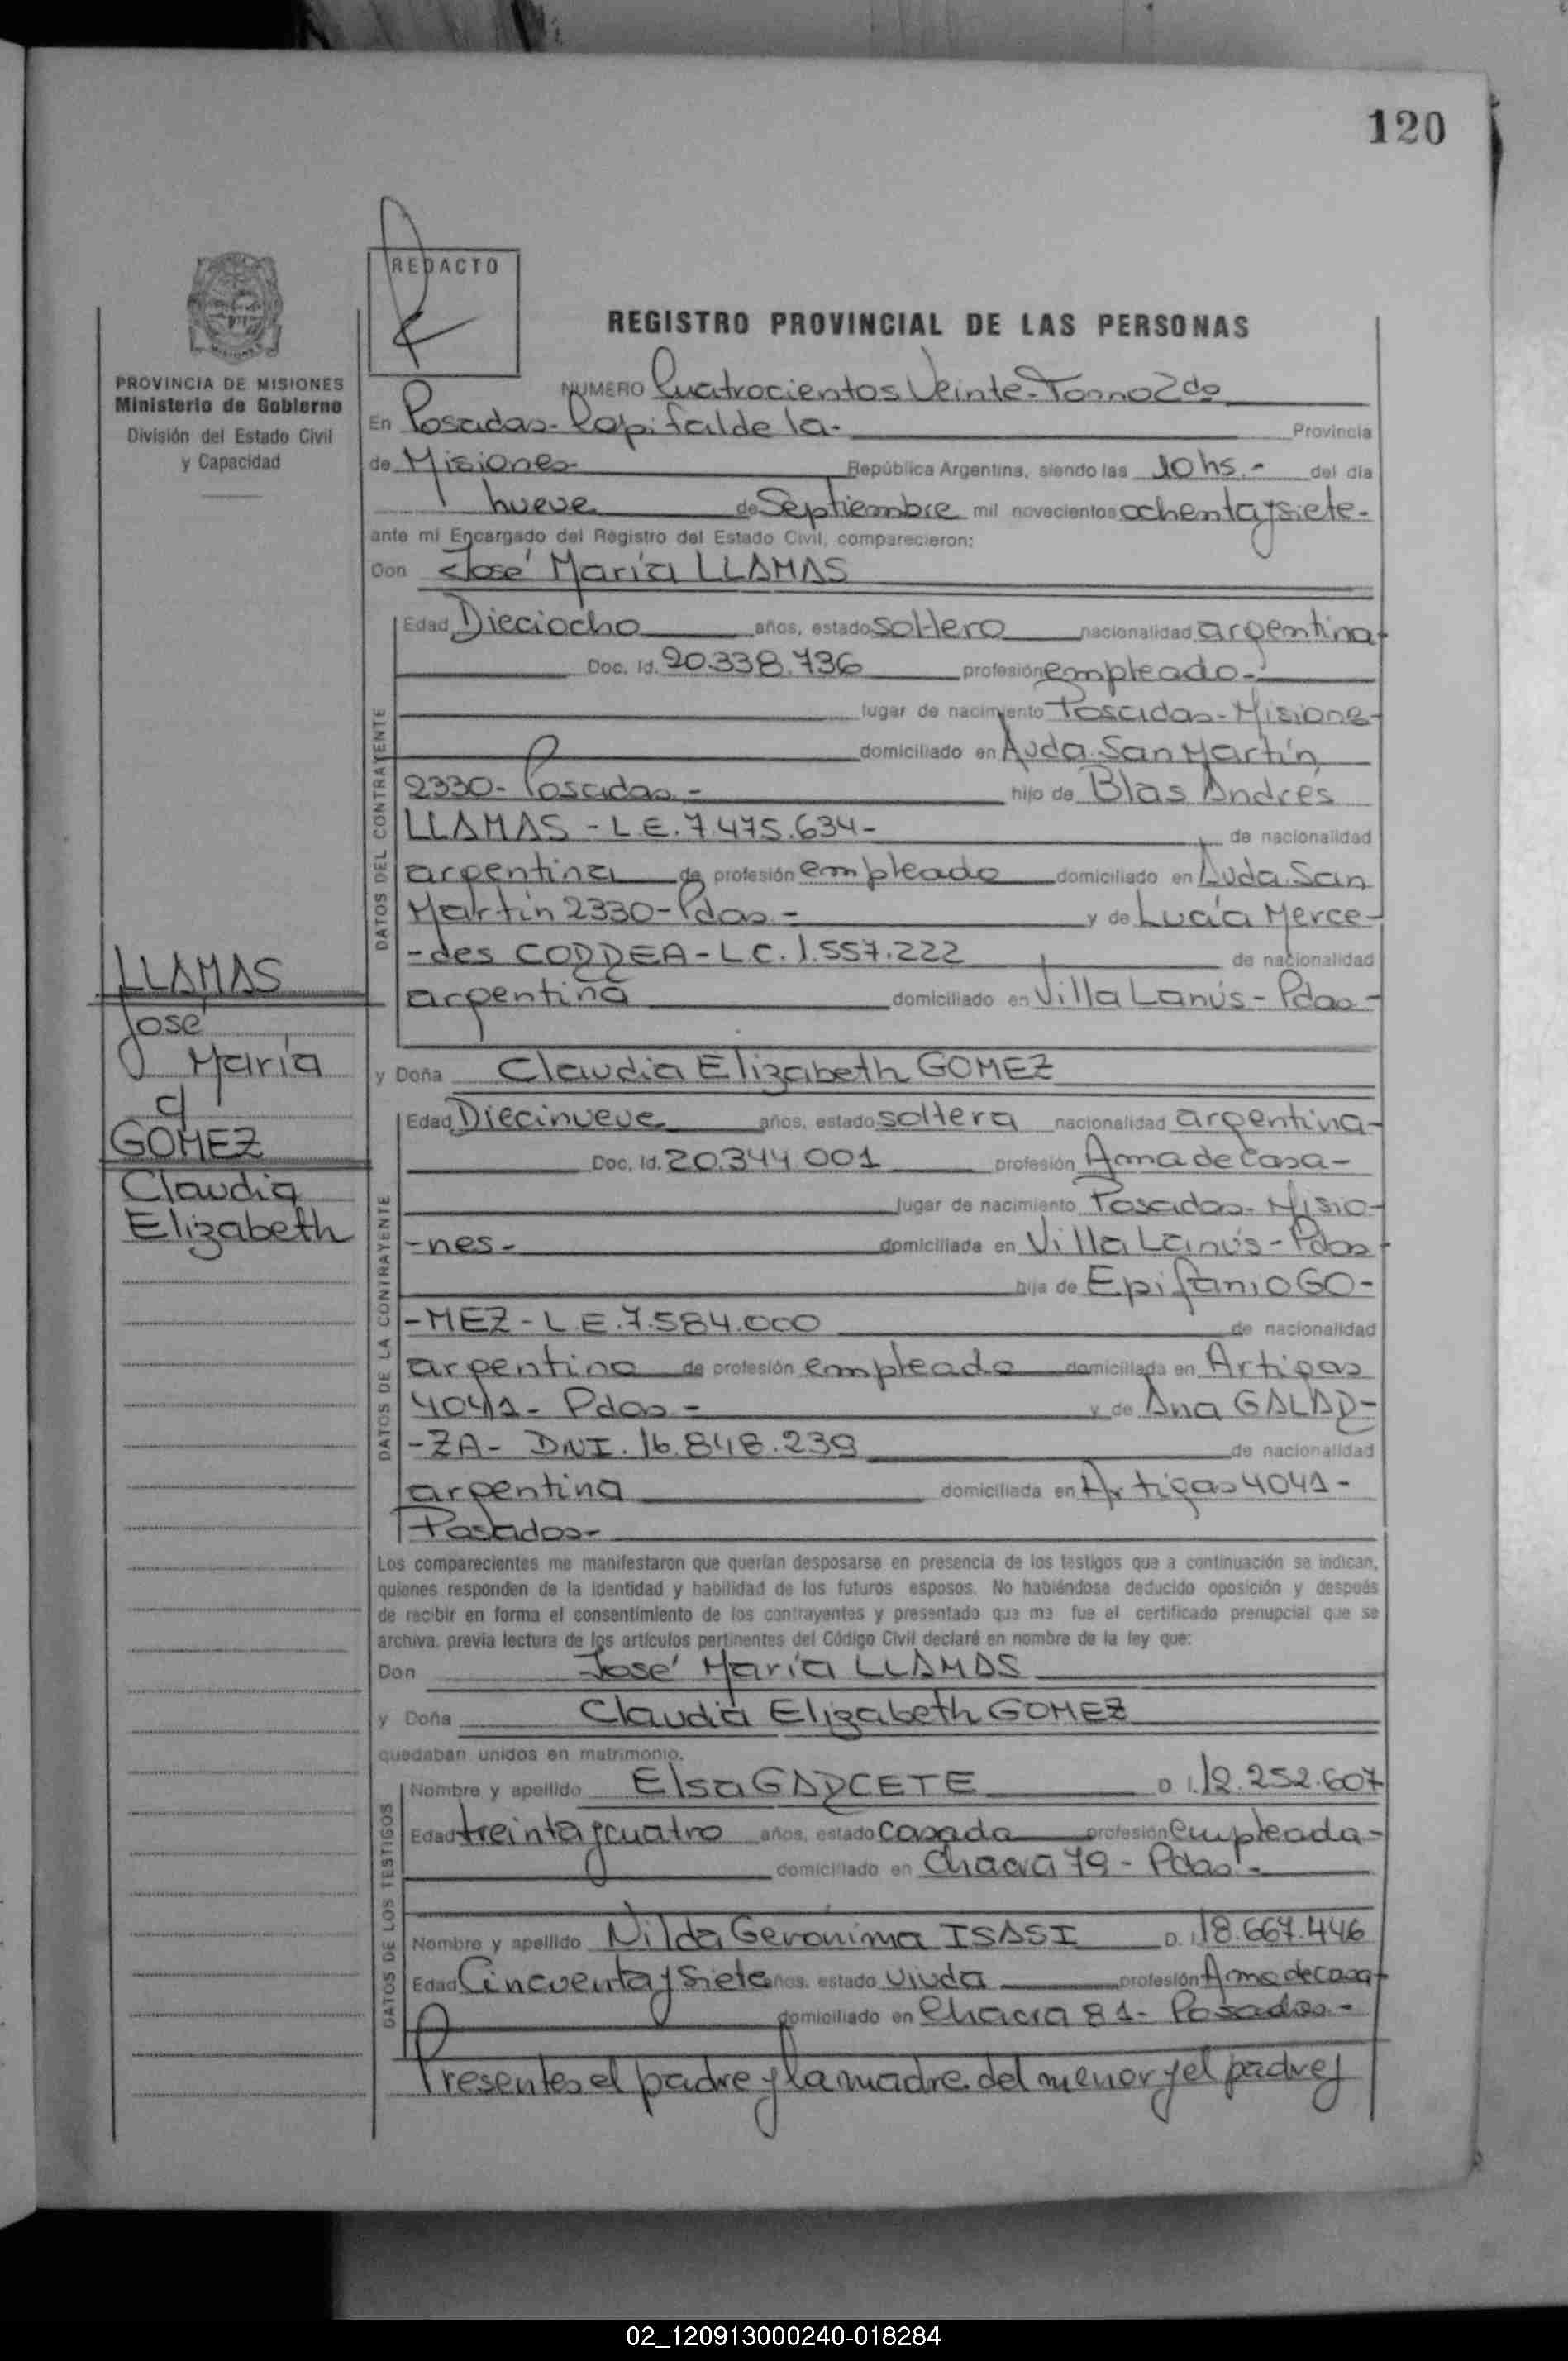 120
REDACTO
REGISTRO PROVINCIAL DE LAS PERSONAS
PROVINCIA DE MISIONES
Ministerio de Gobierno
División del Estado Civil
y Capacidad
NUMERO Cuatrocientos Veinte-Tomo 2do
En Posadas-Capital de la- Provincia
de Misiones República Argentina, siendo las 10 hs.- del día
nueve de Septiembre mil novecientos ochenta y siete-
ante mi Encargado del Registro del Estado Civil, comparecieron:
Don José María LLAMAS
DATOS DEL CONTRAYENTE
Edad Dieciocho años, estado soltero nacionalidad argentina-
Doc. Id. 20.338.736 profesión empleado-
lugar de nacimiento Posadas-Misione-
domiciliado en Avda. San Martín
2330- Posadas- hijo de Blas Andres
LLAMAS - L.E. 7.475.634- de nacionalidad
argentina de profesión empleado domiciliado en Avda. San
Martín 2330-Pdas.- y de Lucía Merce-
-des CORREA-L.C. 1.557.222 de nacionalidad
argentina domiciliado en Villa Lanús-Pdas-
LLAMAS
José
María
c/
GOMEZ
Claudia
Elizabeth
y Doña Claudia Elizabeth GOMEZ
DATOS DE LA CONTRAYENTE
Edad Diecinueve años, estado soltera nacionalidad argentina-
Doc. Id. 20.344.001 profesión Ama de Casa-
lugar de nacimiento Posadas-Misio-
-nes- domiciliada en Villa Lanús-Pdas-
hija de Epifanio GO-
-MEZ-L.E. 7.584.000 de nacionalidad
argentino de profesión empleado domiciliada en Artigas
4041- Pdas- y de Ana GALAR-
-ZA- DNI. 16.848.239 de nacionalidad
argentina domiciliada en Artigas 4041-
Posadas-
Los comparecientes me manifestaron que querían desposarse en presencia de los testigos que a continuación se indican,
quienes responden de la identidad y habilidad de los futuros esposos. No habiéndose deducido oposición y después
de recibir en forma el consentimiento de los contrayentes y presentado que me fue el certificado prenupcial que se
archiva, previa lectura de los artículos pertinentes del Código Civil declaré en nombre de la ley que:
Don José María LLAMAS
y Doña Claudia Elizabeth GOMEZ
quedaban unidos en matrimonio.
DATOS DE LOS TESTIGOS
Nombre y apellido Elsa GARCETE D. I. 12.252.607
Edad treinta y cuatro años, estado casada profesión empleada-
domiciliado en Chacra 79-Pdas.-
Nombre y apellido Nilda Geronima ISASI D. I. 18.667.446
Edad Cincuenta y Siete años, estado viuda profesión Ama de casa-
domiciliado en Chacra 81-Posadas-
Presentes el padre y la madre del menor y el padre y
02_120913000240-018284